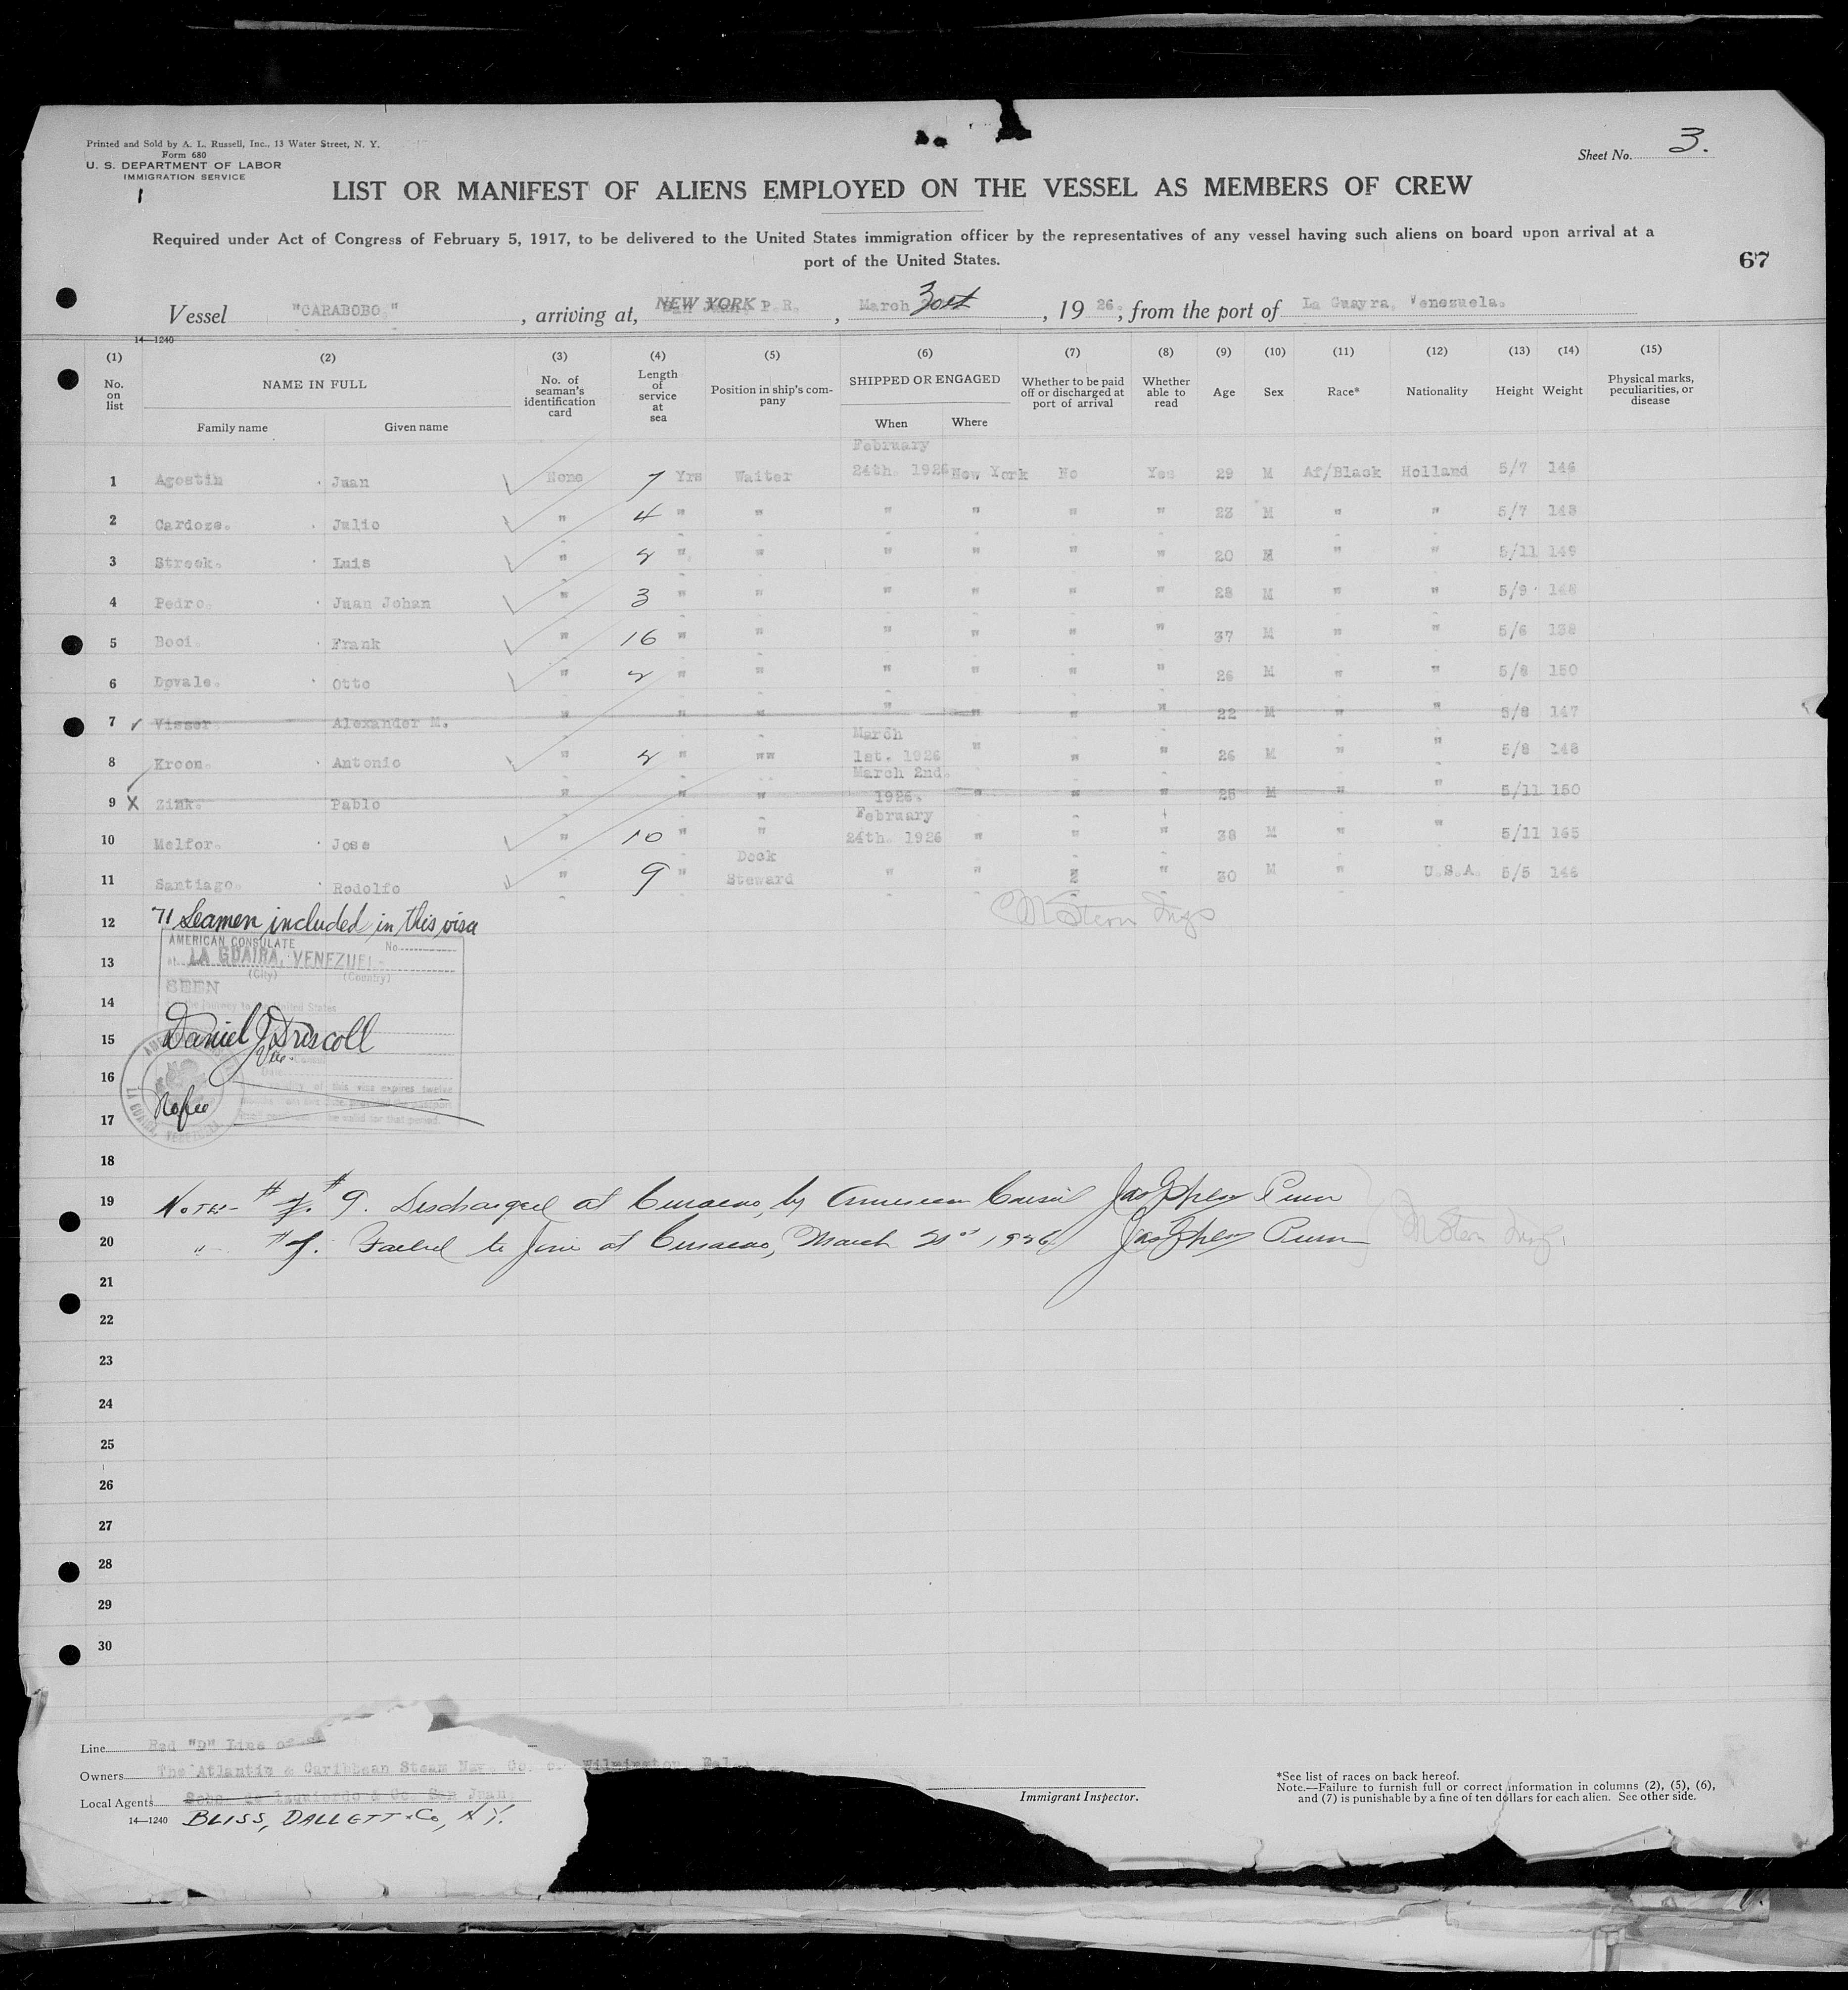 Printed and Sold by A. L. Russell, Inc., 13 Water Street, N. Y.
Form 680
U. S. DEPARTMENT OF LABOR
IMMIGRATION SERVICE
Sheet No. 3.
LIST OR MANIFEST OF ALIENS EMPLOYED ON THE VESSEL AS MEMBERS OF CREW
Required under Act of Congress of February 5, 1917, to be delivered to the United States immigration officer by the representatives of any vessel having such aliens on board upon arrival at a
port of the United States.
67
Vessel "CARABOBO", arriving at, NEW YORK P.R., March 30st, 1926, from the port of La Guayra, Venezuela.
14—1240
(1) (2) (3) (4) (5) (6) (7) (8) (9) (10) (11) (12) (13) (14) (15)
No. on list
NAME IN FULL
Family name Given name
No. of seaman's identification card
Length of service at sea
Position in ship's company
SHIPPED OR ENGAGED
When Where
Whether to be paid off or discharged at port of arrival
Whether able to read
Age Sex Race* Nationality Height Weight
Physical marks, peculiarities, or disease
February
1 Agostin Juan None 7 Yrs Waiter 24th. 1926 New York No Yes 29 M Af/Black Holland 5/7 146
2 Cardoze. Julio " 4 " " " " " " 23 M " " 5/7 148
3 Streek. Luis " " " " " " " 20 M " " 5/11 149
4 Pedro. Juan Johan " 3 " " " " " " 28 M " " 5/9 148
5 Booi. Frank " 16 " " " " " " 37 M " " 5/6 138
6 Dovale. Otto " " " " " " " 26 M " " 5/8 150
7 Visser. Alexander M. " " " " " " " 22 M " " 5/8 147
March
8 Kroon. Antonio " " "" 1st. 1926 " " " 26 M " " 5/8 148
March 2nd.
9 X Zink. Pablo " " " 1926. " " " 25 M " " 5/11 150
February
10 Melfor. Jose " 10 " " 24th. 1926 " " " 38 M " " 5/11 165
Deck
11 Santiago. Rodolfo " 9 " Steward " " " " 30 M " U.S.A. 5/5 146
12 71 Seamen included in this visa
AMERICAN CONSULATE No.
13 at LA GUAIRA, VENEZUEL
(City) (Country)
SEEN
14
15 Daniel J Driscoll
Vice
16
No fee
17
LA GUAIRA, VENEZUELA
18
19 NOTE- # 9. Discharged at Curacao, by American Consul
20 " # 7. Failed to join at Curacao, March 21st 1926
21
22
23
24
25
26
27
28
29
30
Line Red "D" Line of
Owners The Atlantic & Caribbean Steam Nav. Co. of Wilmington, Del.
Local Agents Sobs. de Izquierdo & Co. San Juan,
14—1240 BLISS, DALLETT & Co, N Y.
Immigrant Inspector.
*See list of races on back hereof.
Note.—Failure to furnish full or correct information in columns (2), (5), (6),
and (7) is punishable by a fine of ten dollars for each alien. See other side.